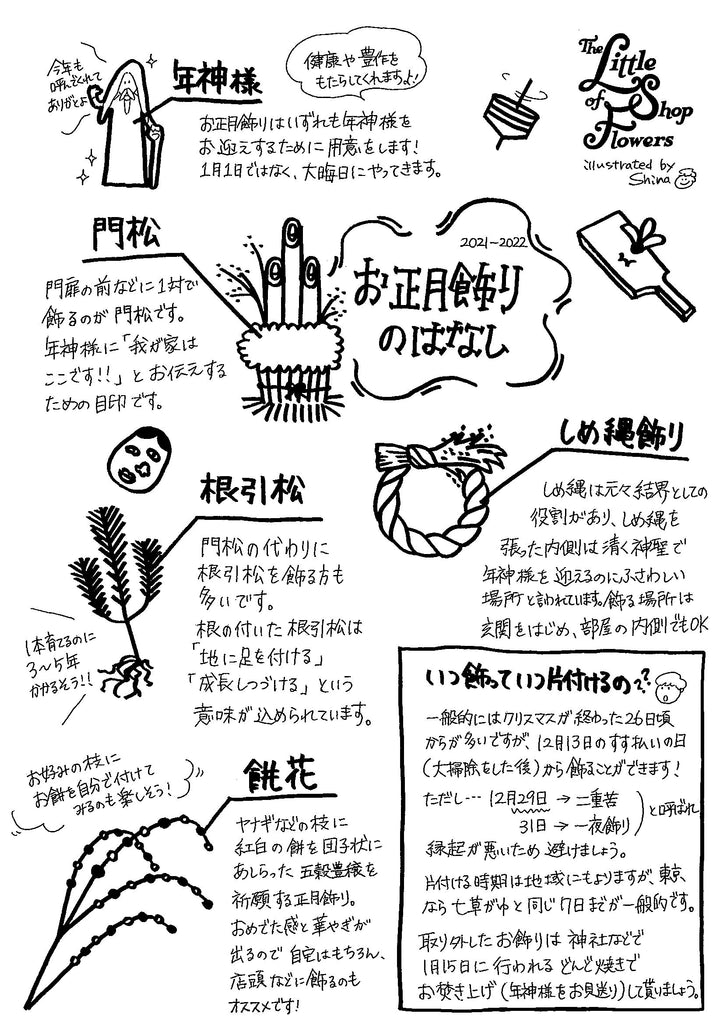 The Little Shop of Flowers
illustrated by
Shina
今年も
呼んでくれて
ありがとよ
年神様
健康や豊作を
もたらしてくれますっよ!
お正月飾りはいずれも年神様を
お迎えするために用意をします!
1月1日ではなく、大晦日にやってきます。
2021~2022
お正月飾り
のはなし
門松
門扉の前などに1対で
飾るのが門松です。
年神様に「我が家は
ここです!!」とお伝えする
ための目印です。
しめ縄飾り
しめ縄は元々結界としての
役割があり、しめ縄を
張った内側は清く神聖で
年神様を迎えるのにふさわしい
場所と言われています。飾る場所は
玄関をはじめ、部屋の内側でもOK
根引松
門松の代わりに
根引松を飾る方も
多いです。
根の付いた根引松は
「地に足を付ける」
「成長しつづける」という
意味が込められています。
1本育てるのに
3~5年
かかるそう!!
餅花
お好みの枝に
お餅を自分で付けて
みるのも楽しそう!
ヤナギなどの枝に
紅白の餅を団子状に
あしらった五穀豊穣を
祈願する正月飾り。
おめでた感と華やぎが
出るので自宅はもちろん、
店頭などに飾るのも
オススメです!
いつ飾っていつ片付けるの??
一般的にはクリスマスが終わった26日頃
からが多いですが、12月13日のすす払いの日
(大掃除をした後)から飾ることができます!
ただし… 12月29日→二重苦
31日→一夜飾り
と呼ばれ
縁起が悪いため避けましょう。
片付ける時期は地域にもよりますが、東京、
なら七草がゆと同じ7日までが一般的です。
取り外したお飾りは神社などで
1月15日に行われるどんど焼きで
お焚き上げ(年神様をお見送り)して貰いましょう。